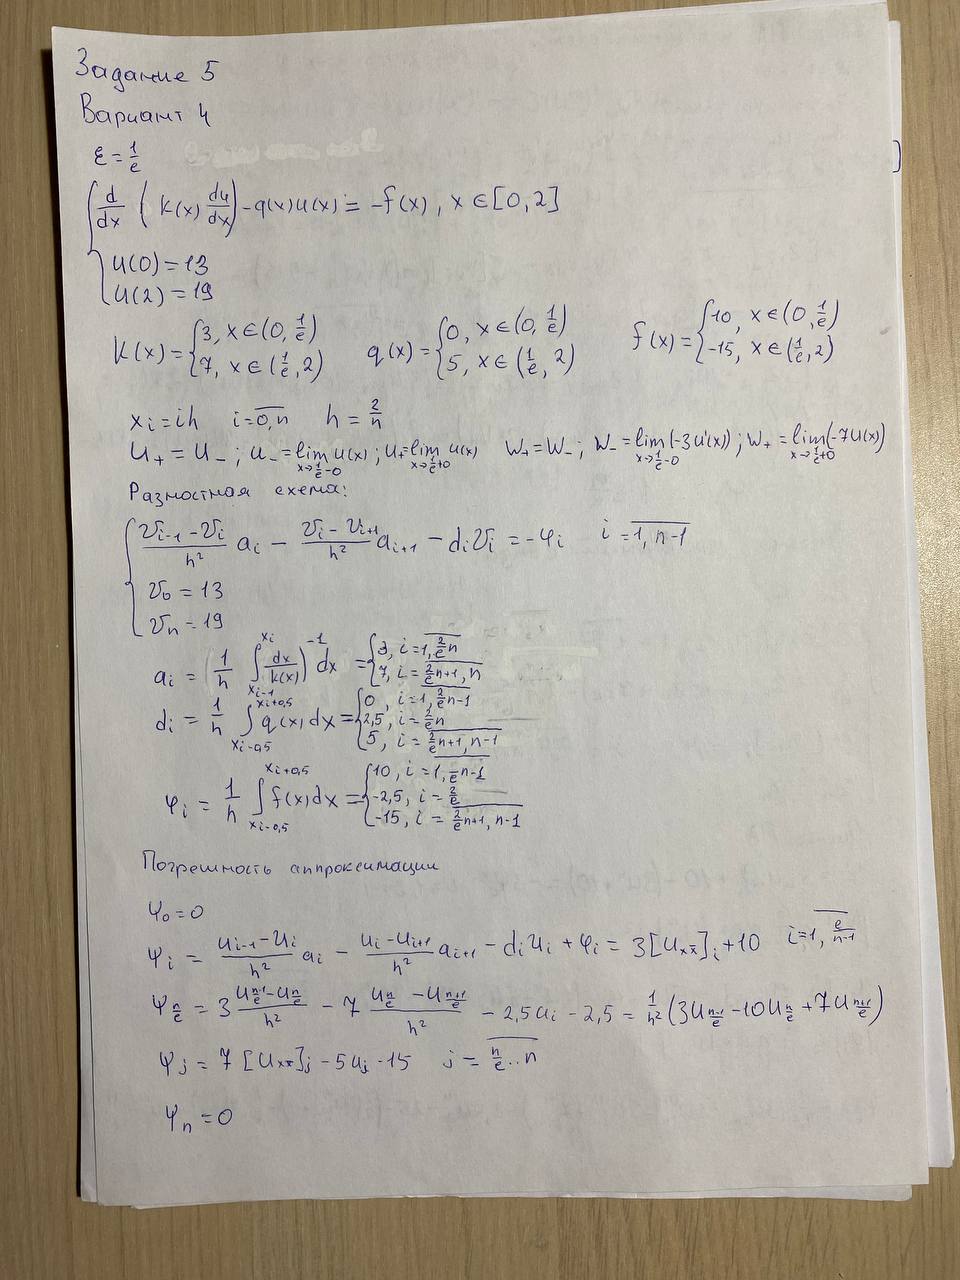 Задание 5
Вариант 4
ξ = 1/e
{ d/dx ( k(x) du/dx ) - q(x)u(x) = -f(x), x ∈ [0,2]
u(0) = 13
u(2) = 19
k(x) = { 3, x ∈ (0, 1/e) ; 7, x ∈ (1/e, 2) q(x) = { 0, x ∈ (0, 1/e) ; 5, x ∈ (1/e, 2) f(x) = { 10, x ∈ (0, 1/e) ; -15, x ∈ (1/e, 2)
xi = ih i = 0,n h = 2/n
u+ = u- ; u- = lim x→1/e-0 u(x) ; u+ = lim x→1/e+0 u(x) w+ = w- ; w- = lim x→1/e-0 (-3u'(x)) ; w+ = lim x→1/e+0 (-7u(x))
Разностная схема:
{ (vi-1 - vi)/h² ai - (vi - vi+1)/h² ai+1 - di vi = -φi i = 1, n-1
v0 = 13
vn = 19
ai = ( 1/h ∫ xi-1 xi dx/k(x) )⁻¹ dx = { 3, i = 1, 2/e n ; 7, i = 2/e n+1, n
di = 1/h ∫ xi-0,5 xi+0,5 q(x) dx = { 0, i = 1, 2/e n-1 ; 2,5, i = 2/e n ; 5, i = 2/e n+1, n-1
φi = 1/h ∫ xi-0,5 xi+0,5 f(x) dx = { 10, i = 1, /e n-1 ; -2,5, i = 2/e ; -15, i = 2/e n+1, n-1
Погрешность аппроксимации
ψ0 = 0
ψi = (ui-1 - ui)/h² ai - (ui - ui+1)/h² ai+1 - di ui + φi = 3[uxx̄]i + 10 i = 1, e/n-1
ψn/e = 3 (un-1/e - un/e)/h² - 7 (un/e - un+1/e)/h² - 2,5ui - 2,5 = 1/h² (3un-1/e - 10un/e + 7un+1/e)
ψj = 7[uxx̄]j - 5uj - 15 j = n/e..n
ψn = 0